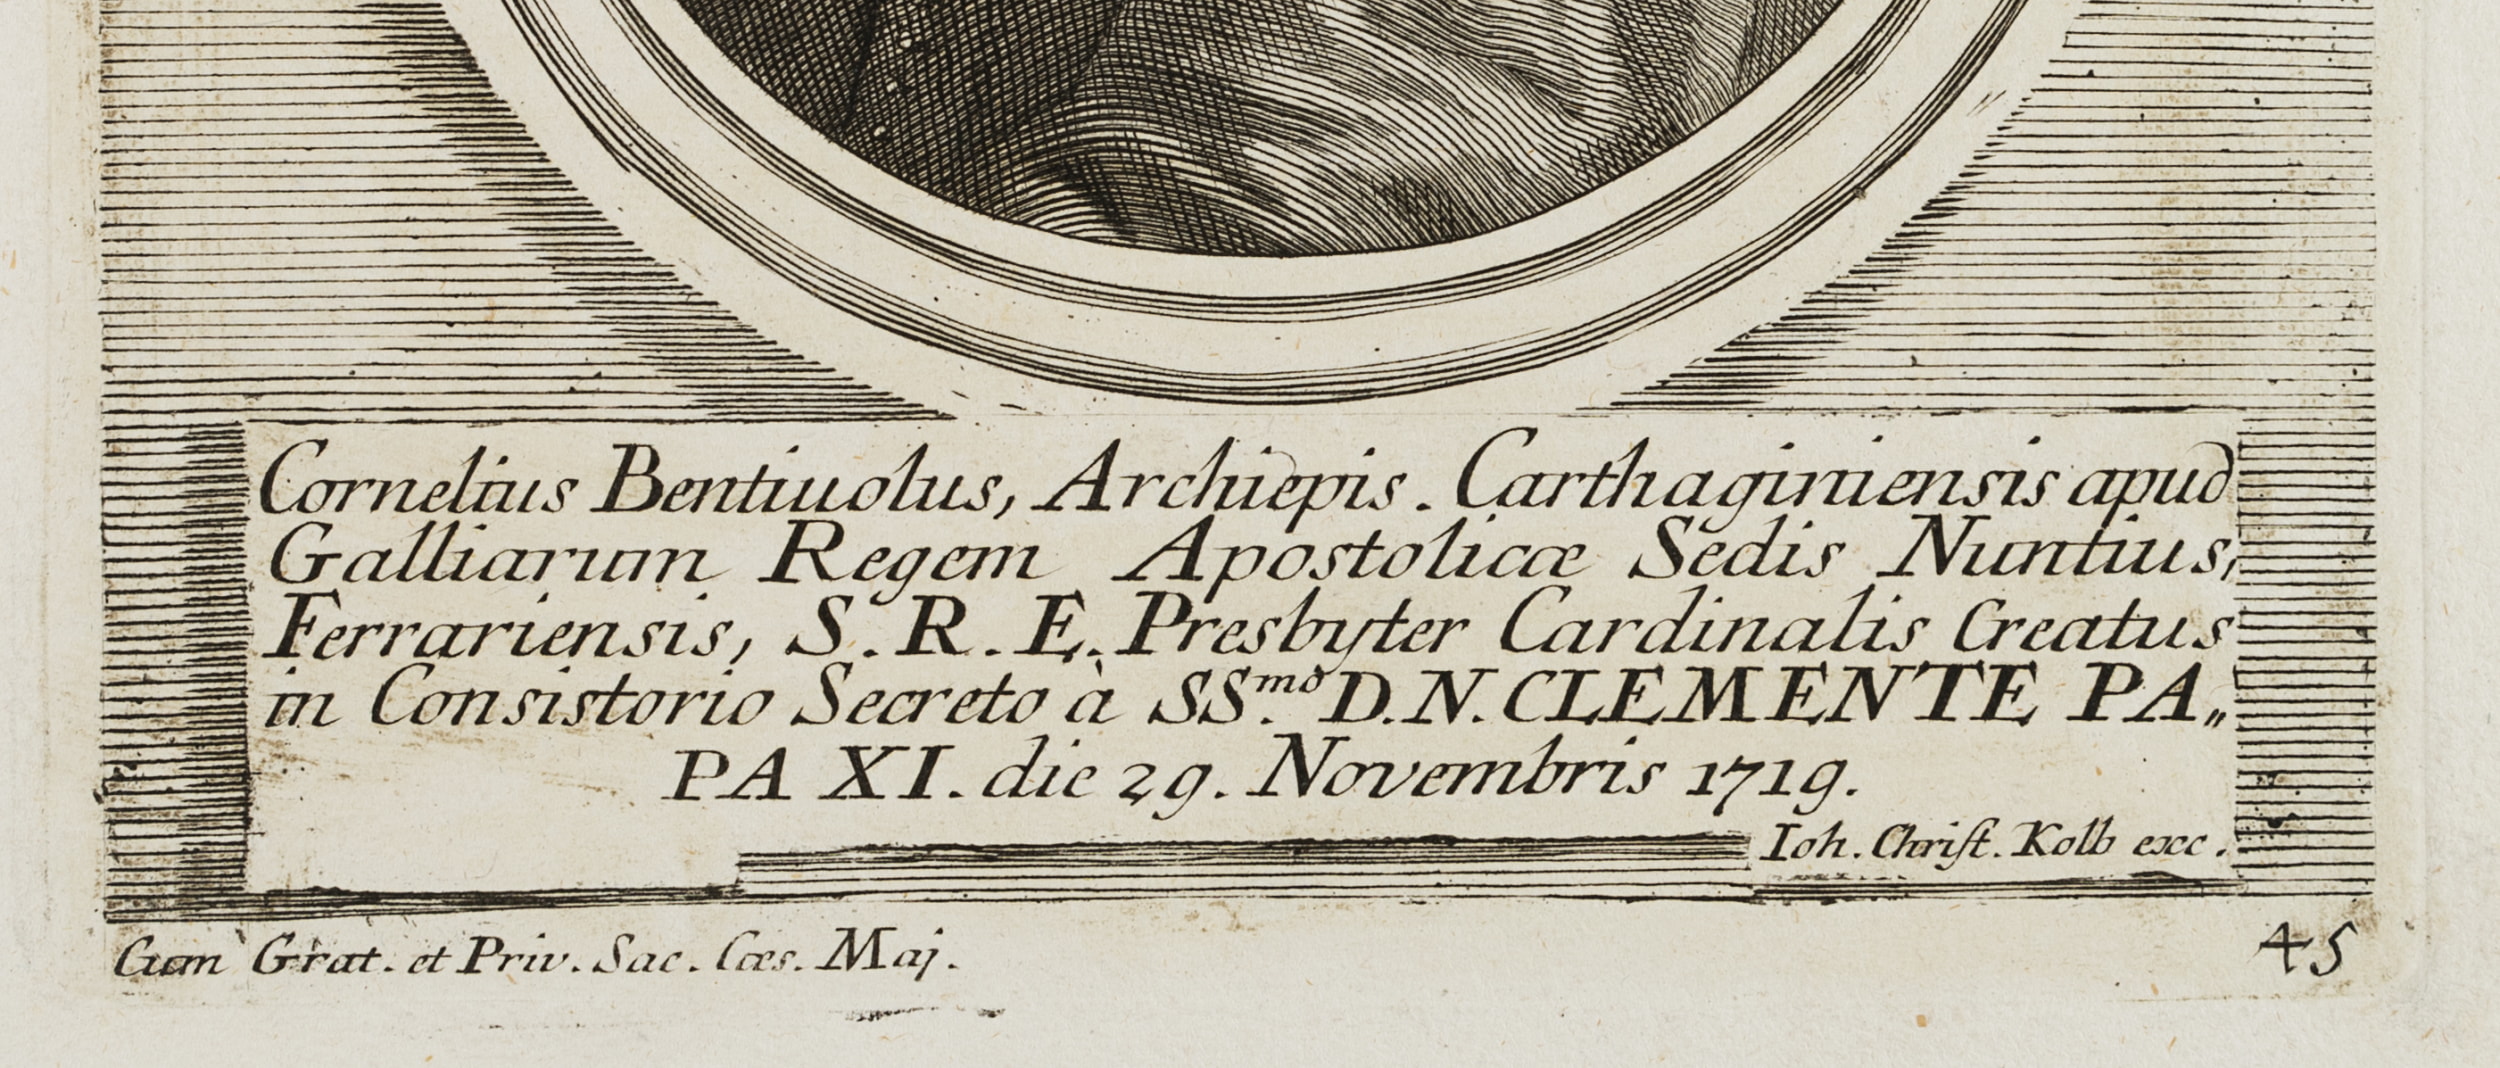 Cornelius Bentiuolus, Archiepis. Carthaginiensis apud
Galliarum Regem Apostolicæ Sedis Nuntius,
Ferrariensis, S. R. E. Presbyter Cardinalis Creatus
in Consistorio Secreto à SS.mo D. N. CLEMENTE PA„
PA XI. die 29. Novembris 1719.
Ioh. Christ. Kolb exc.
Cum Grat. et Priv. Sac. Cæs. Maj.
45